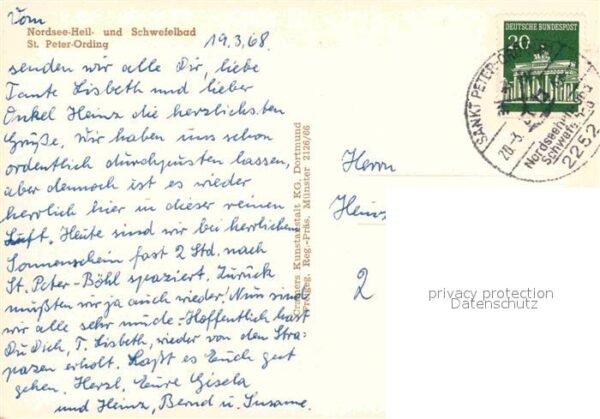 Vom
Nordsee-Heil- und Schwefelbad
St. Peter-Ording
19.3.68.
senden wir alle Dir, liebe
Tante Lisbeth und lieber
Onkel Heinz die herzlichsten
Grüße. Wir haben uns schon
ordentlich durchpusten lassen,
aber dennoch ist es wieder
herrlich hier in dieser reinen
Luft. Heute sind wir bei herrlichem
Sonnenschein fast 2 Std. nach
St. Peter-Böhl spaziert. Zurück
mußten wir ja auch wieder! Nun sind
wir alle sehr müde. - Hoffentlich hast
Du Dich, T. Lisbeth, wieder von den Stra-
pazen erholt. Laßt es Euch gut
gehen. Herzl. Eure Gisela
und Heinz, Bernd u. Susanne.
Cramers Kunstanstalt KG. Dortmund
Freigeg. Reg.-Präs. Münster 2126/66
DEUTSCHE BUNDESPOST
20
SANKT PETER-ORDING
20.-3.
Nordseeheil- und
Schwefelbad
2252
Herrn
Heinz
2
privacy protection
Datenschutz